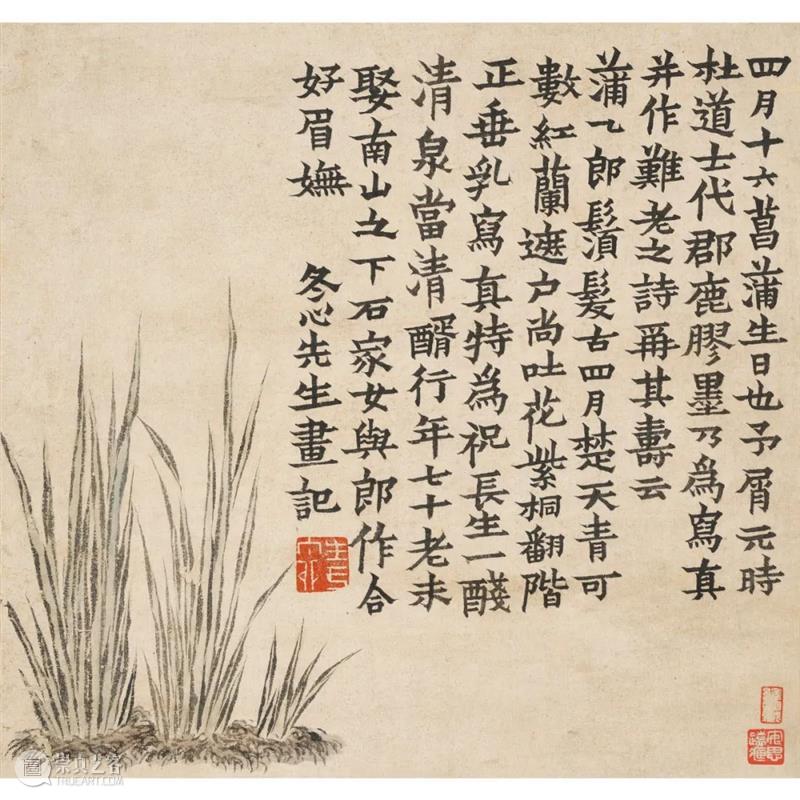 四月十六菖蒲生日也予屑元時
杜道士代郡鹿膠墨乃為寫真
并作難老之詩稱其壽云
蒲九郎鬚髮古四月楚天青可
數紅蘭遮户尚吐花紫桐翻階
正垂乳寫真特為祝長生一醆
清泉當清醑行年七十老未
娶南山之下石家女與郎作合
好眉嫵
冬心先生畫記
崇真艺客
TRUEART.COM